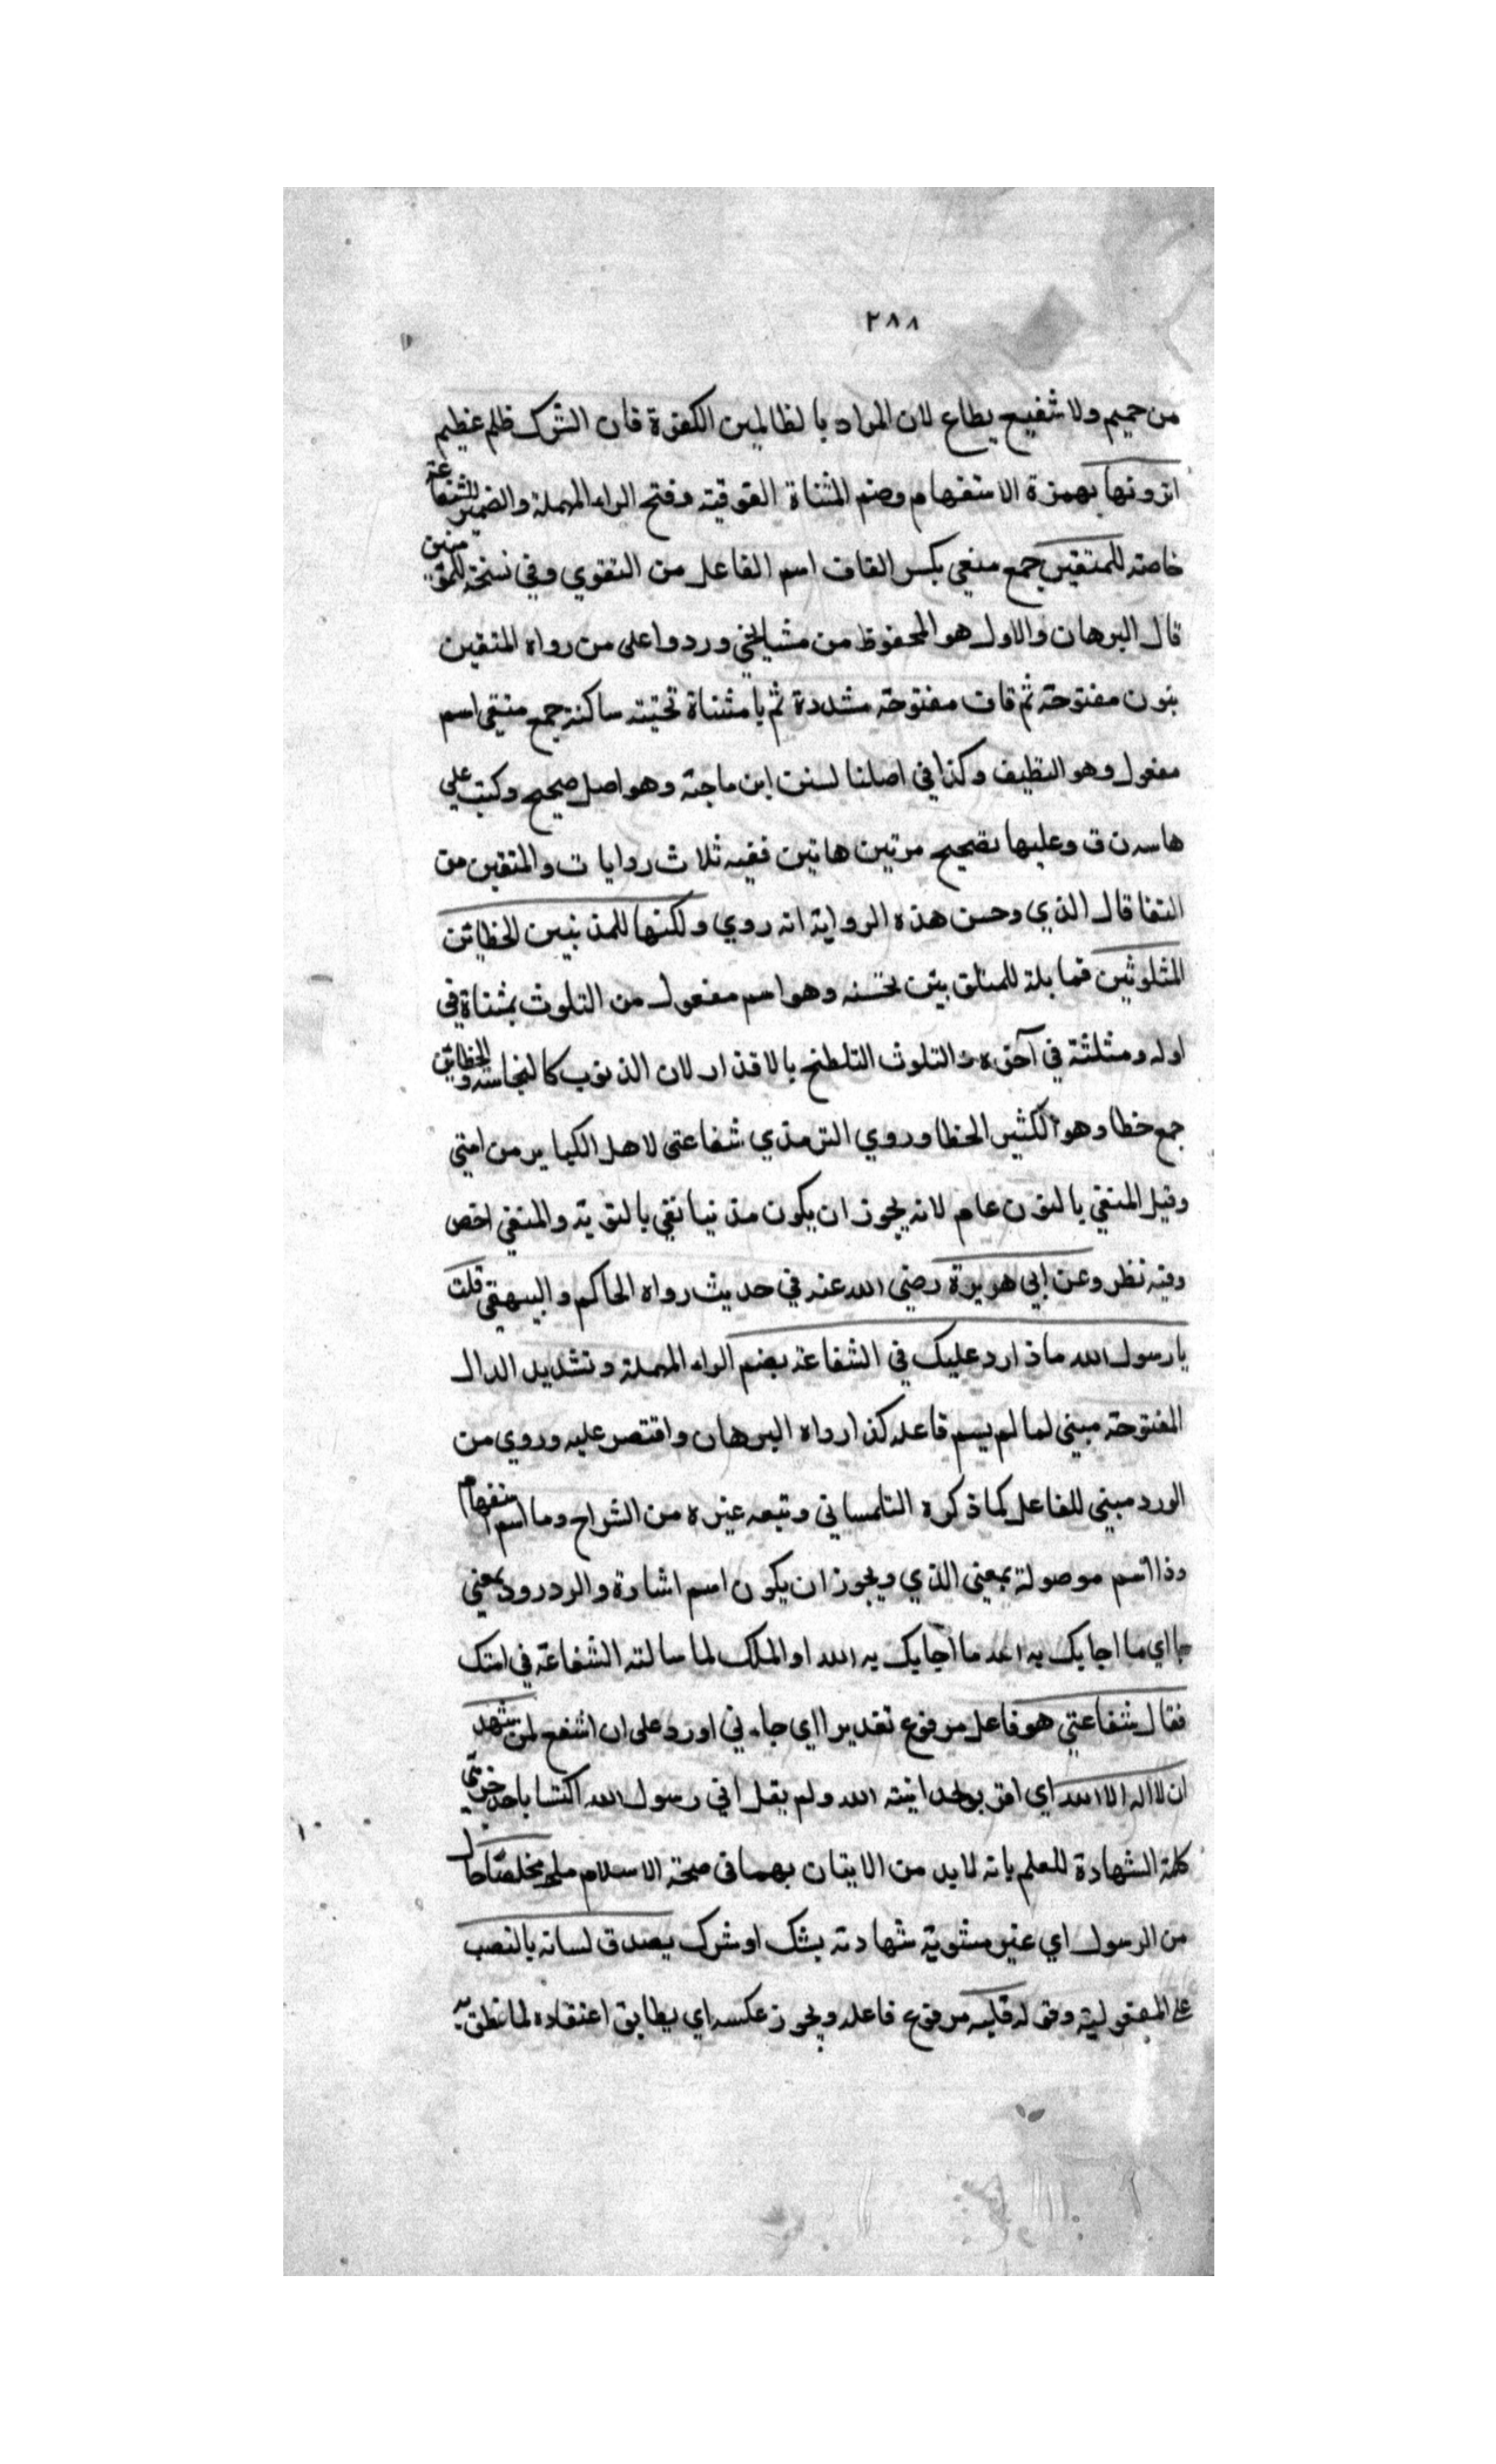 ٢٨٨
من حميم ولا شفيع يطاع لان المراد بالظالمين الكفرة فان الشرك ظلم عظيم
اترونها بهمزة الاستفهام وضم المثناة الفوقية وفتح الراء المهملة والضمير للشفاعة
خاصة للمتقين جمع متقي بكسر القاف اسم الفاعل من التقوي وفي نسخة للمؤمنين
قال البرهان والاول هو المحفوظ من مشايخي وردوا على من رواه المتقين
بنون مفتوحة ثم قاف مفتوحة مشددة ثم يا مثناة تحتية ساكنة جمع منقي اسم
مفعول وهو النظيف وكذا في اصلنا لسنن ابن ماجة وهو اصل صحيح وكتب على
هامسه ن ق وعليها تصحيح مرتين هاتين ففيه ثلاث روايات والمتقين من
النقا قال الذي وحسن هذه الرواية انه روي ولكنها للمذنبين الخطائين
المتلوثين فمابلة للمنقين تحسنه وهو اسم مفعول من التلوث بمثناة في
اوله ومثلثة في آخره والتلوث التلطخ بالاقذار لان الذنوب كالنجاسة والخطائين
جمع خطا وهو الكثير الخطا وروي الترمذي شفاعتي لاهل الكباير من امتي
وقيل المنقي بالنون عام لانه يجوز ان يكون مذنبا نقي بالتوبة والمتقي اخص
وفيه نظر وعن ابي هريرة رضي الله عنه في حديث رواه الحاكم والبيهقي قلت
يا رسول الله ماذا رد عليك في الشفاعة بضم الراء المهملة وتشديد الدال
المفتوحة مبني لما لم يسم فاعله كذا رواه البرهان واقتصر عليه وروي من
الورد مبني للفاعل كما ذكره التلمساني وتبعه غيره من الشراح وما اسم استفهام
وذا اسم موصولة بمعني الذي ويجوز ان يكون اسم اشارة والرد ورود بمعني
جا اي ما اجابك به احد ما اجابك به الله او الملك لما سالته الشفاعة في امتك
فقال شفاعتي هو فاعل مرفوع تقديرا اي جاءني او رد على ان اشفع لمن شهد
ان لا اله الا الله اي اقر بوحدانيته الله ولم يقل اني رسول الله اكتفا باحد جزئي
كلمة الشهادة للعلم بانه لا بد من الاتيان بهما في صحة الاسلام مخلصا حال
من الرسول اي غير مشوبة شهادته بشك او شرك يصدق لسانه بالنصب
على المفعولية وفي له قلبه مرفوع فاعله ويجوز عكسه اي يطابق اعتقاده لما نطق به